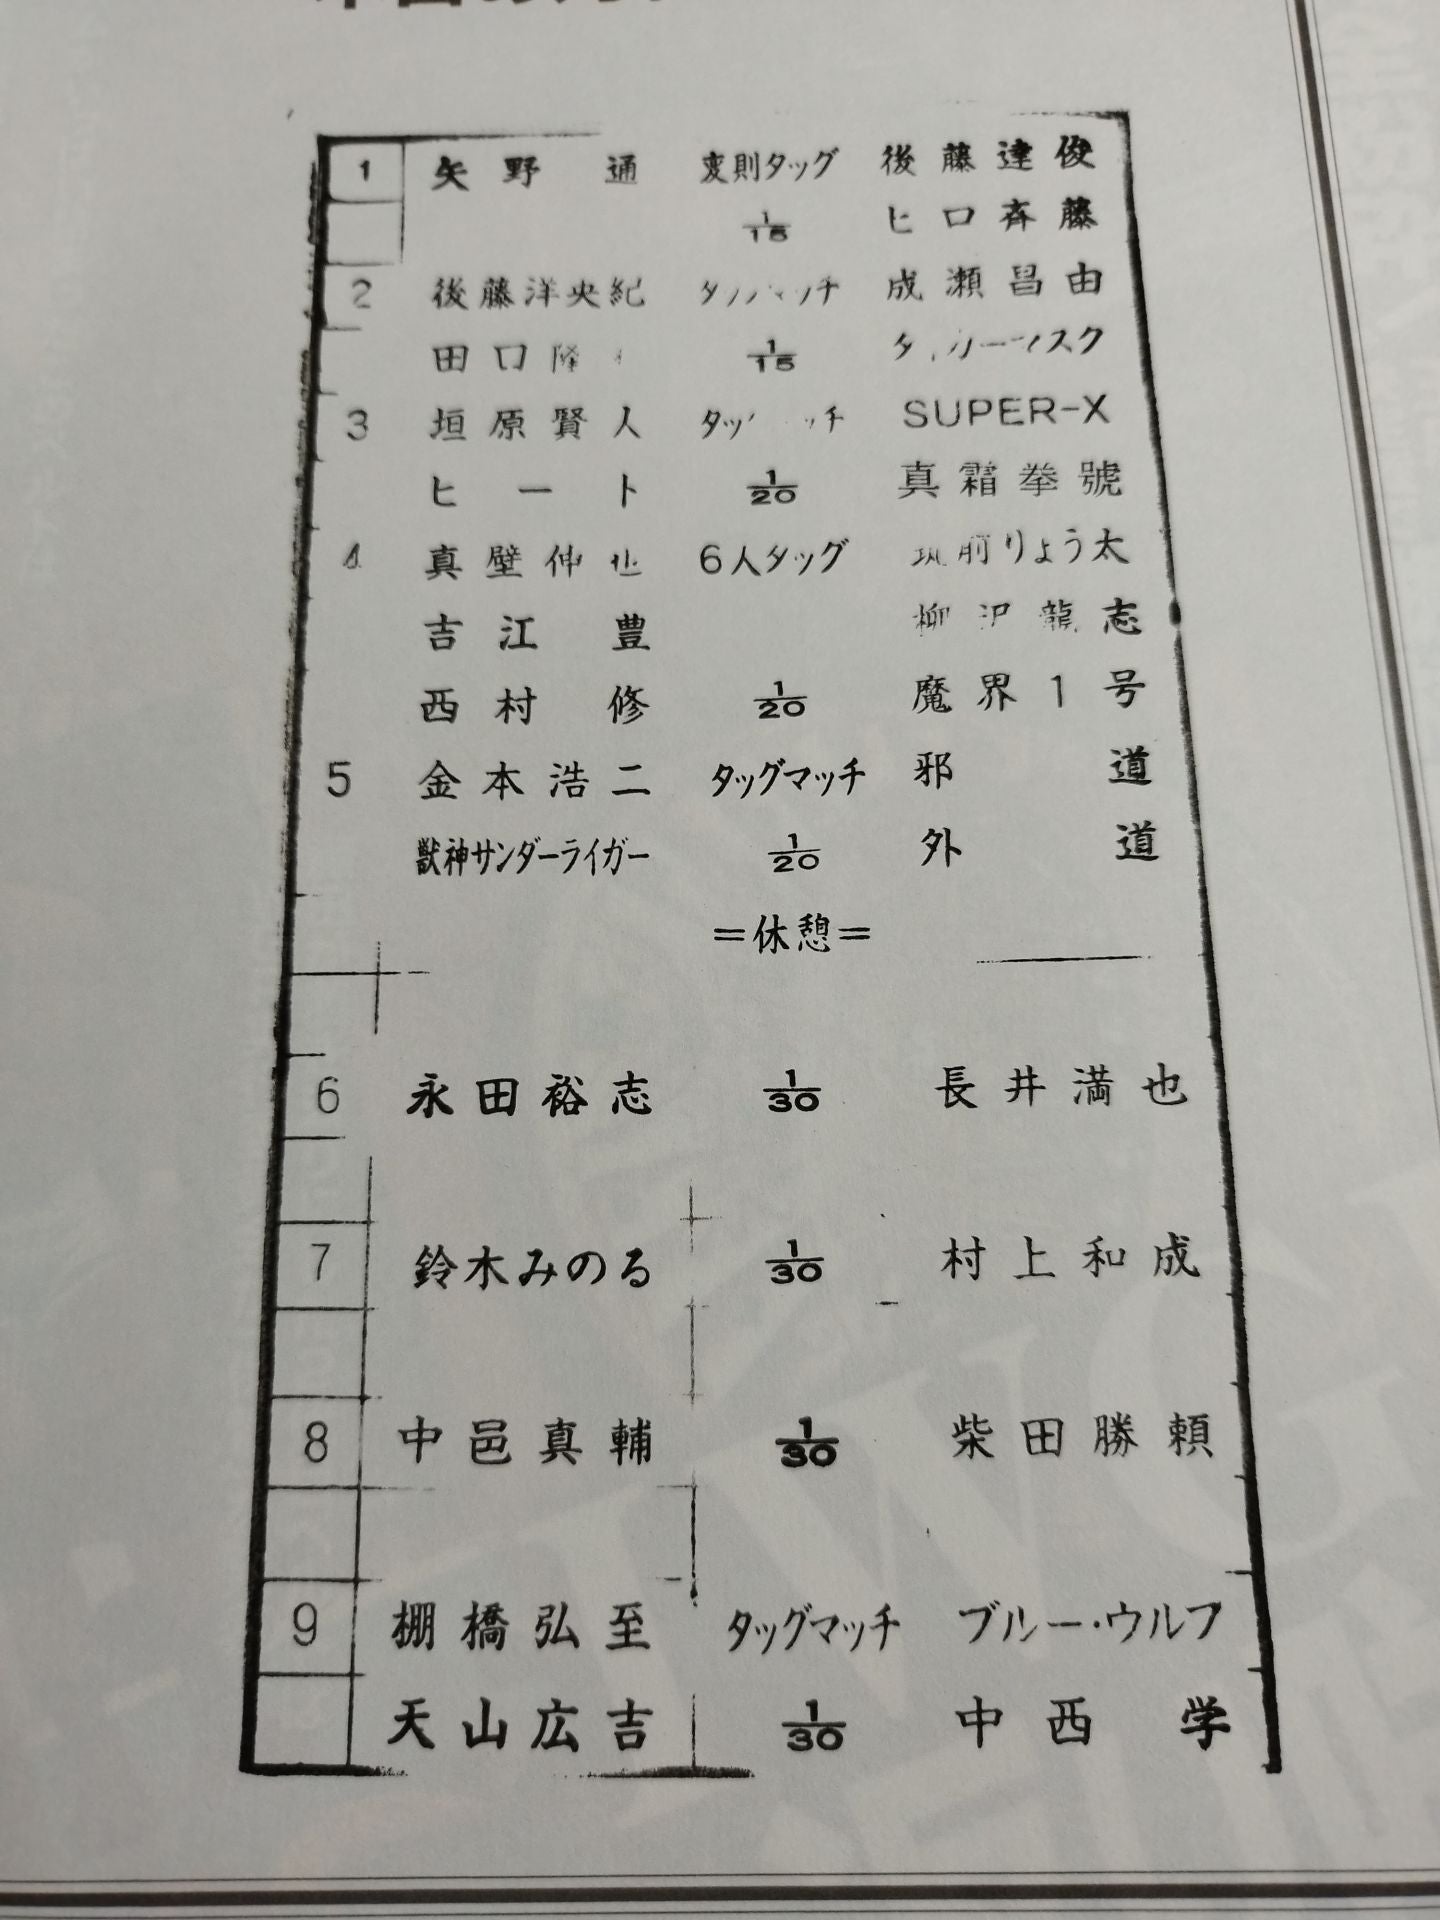 1 矢野 通 変則タッグ 後藤達俊
1/15 ヒロ斉藤
2 後藤洋央紀 タッグマッチ 成瀬昌由
田口隆 1/15 タイガーマスク
3 垣原賢人 タッグマッチ SUPER-X
ヒート 1/20 真霜拳號
4 真壁伸也 6人タッグ 筑前りょう太
吉江 豊 柳沢龍志
西村 修 1/20 魔界1号
5 金本浩二 タッグマッチ 邪道
獣神サンダーライガー 1/20 外道
=休憩=
6 永田裕志 1/30 長井満也
7 鈴木みのる 1/30 村上和成
8 中邑真輔 1/30 柴田勝頼
9 棚橋弘至 タッグマッチ ブルー・ウルフ
天山広吉 1/30 中西 学